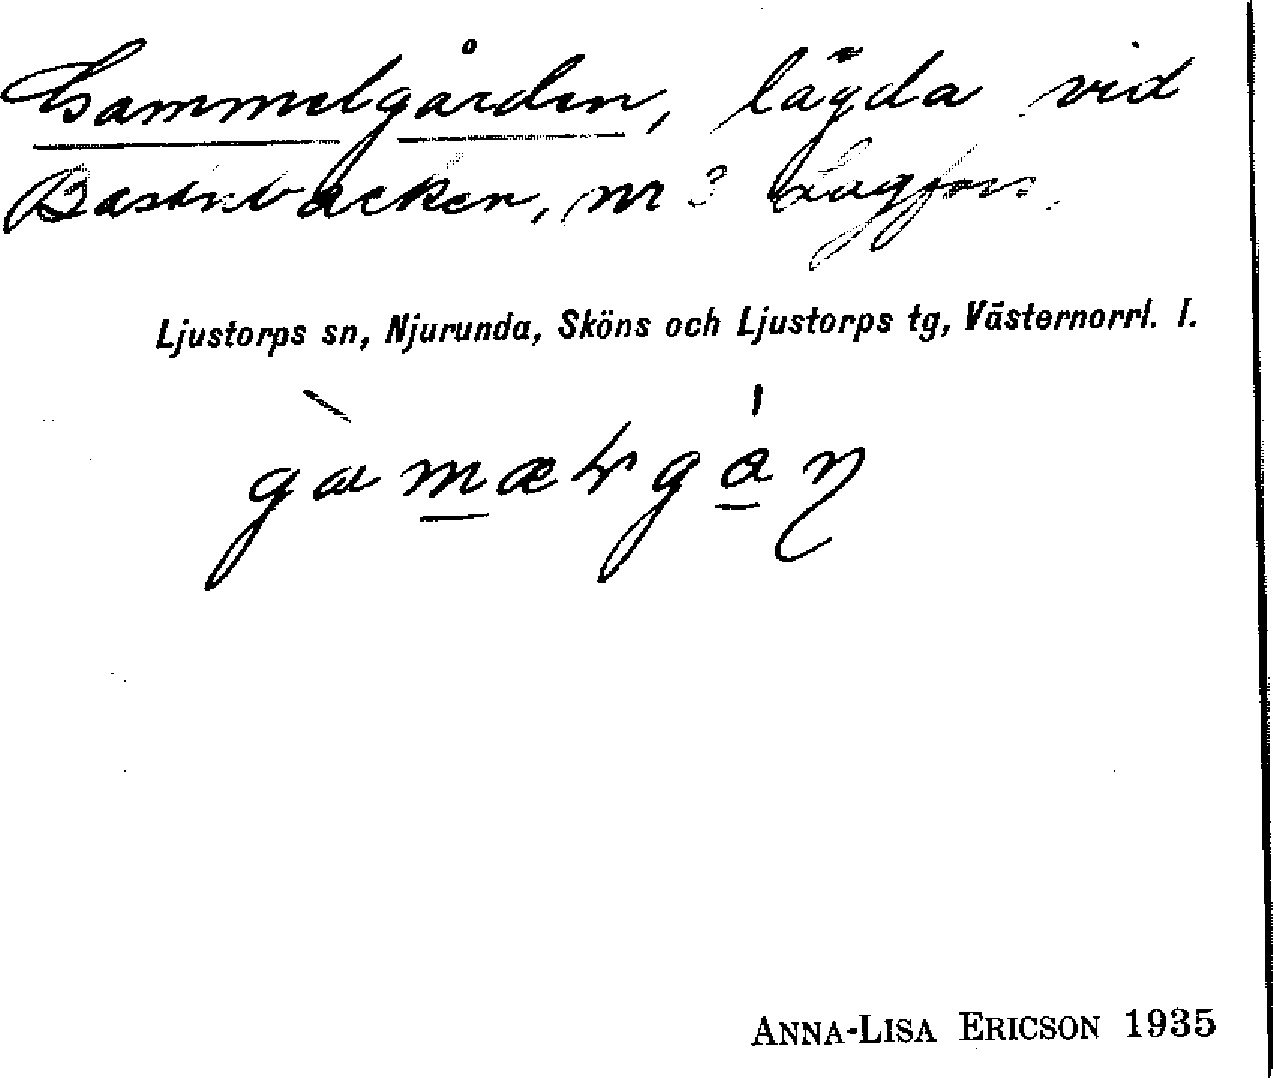 Gammelgården, lägda vid
backen, nr 3 Lagfors.
Ljustorps sn, Njurunda, Sköns och Ljustorps tg, Västernorrl. l.
ANNA-LISA ERICSON 1935